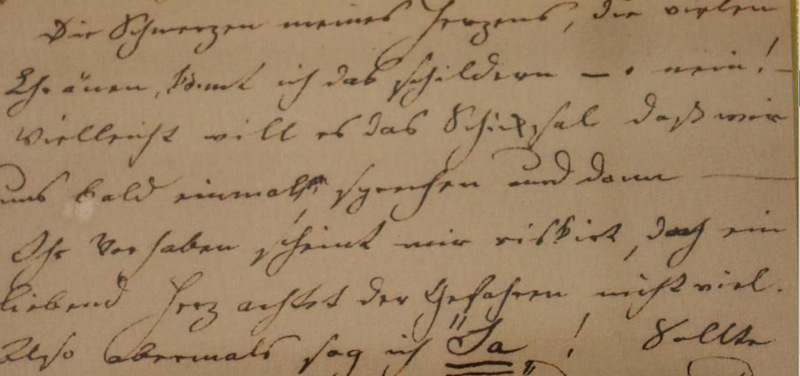 Die Schmerzen meines Herzens, die vielen
Thränen, könnt ich das schildern – o nein! –
Vielleicht will es das Schicksal daß wir
uns bald einmal sprechen und dann —
Ihr Vorhaben scheint mir riskirt, doch ein
liebend Herz achtet der Gefahren nicht viel.
Also abermals sag ich "Ja"! Sollte